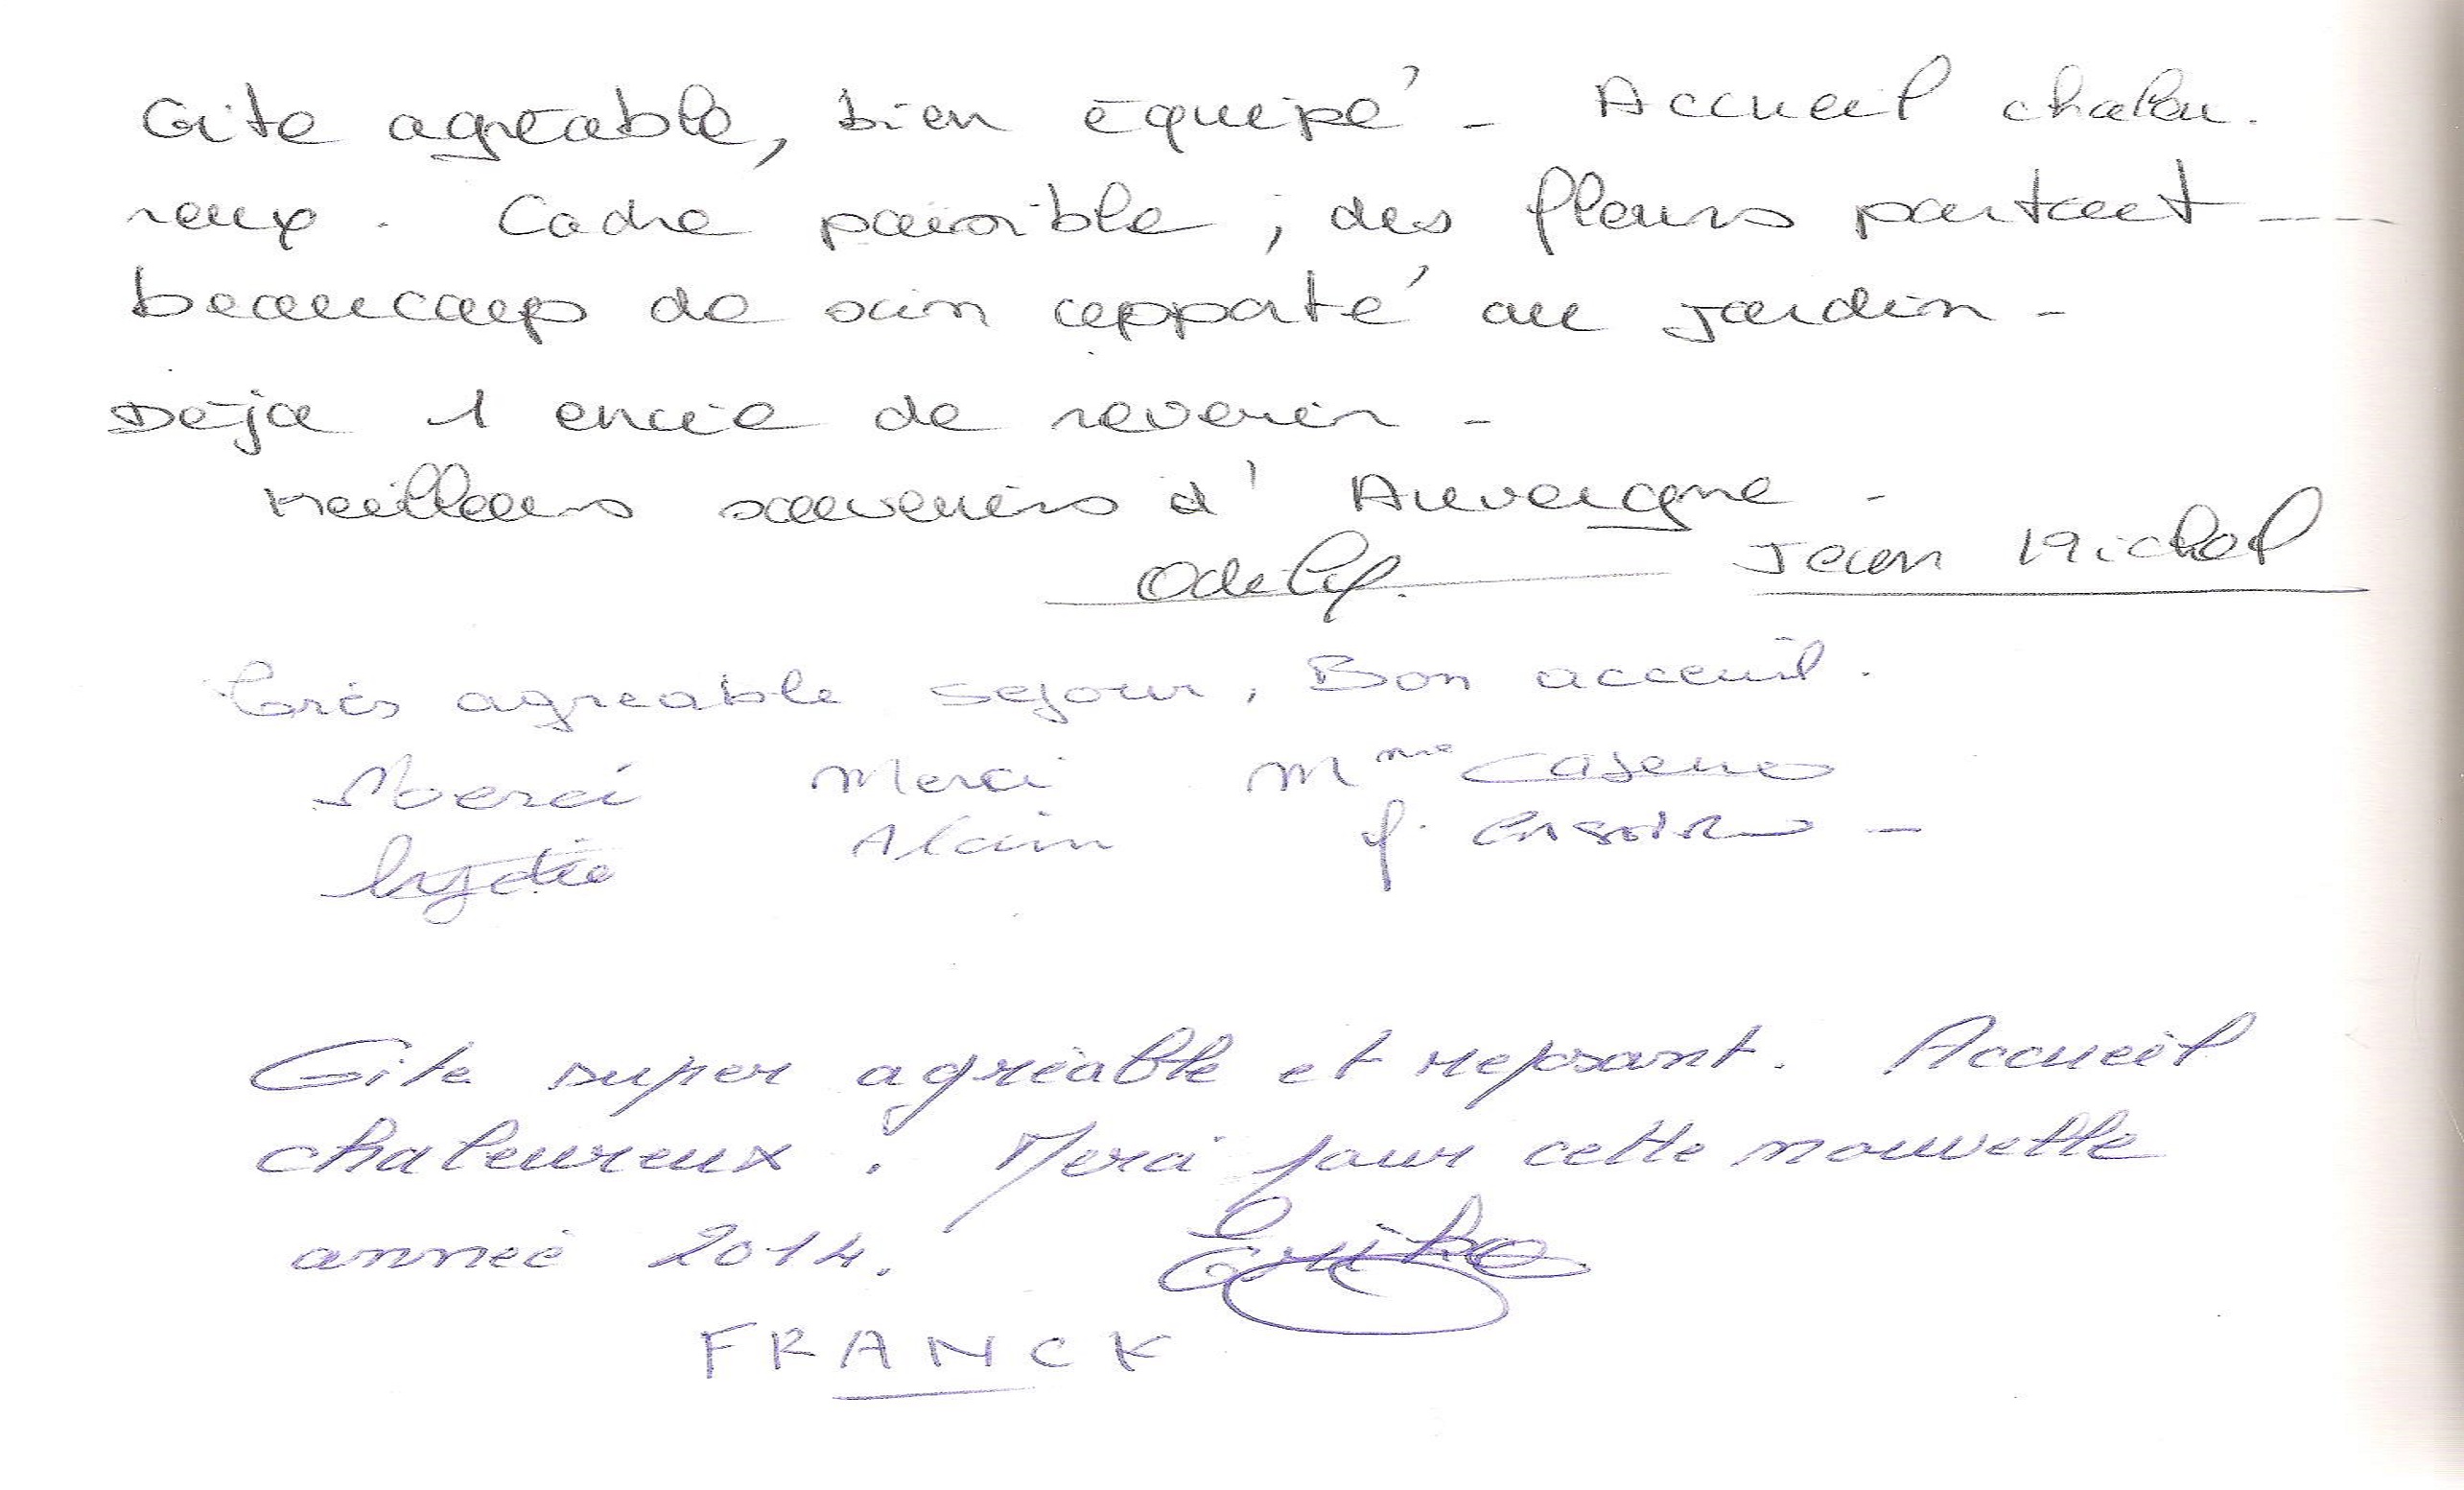 Gite agréable, bien équipé - Accueil chaleu-
reux. Cadre paisible, des fleurs partout ----
beaucoup de soin apporté au jardin -
Déja 1 envie de revenir -
Meilleurs souvenirs d'Auvergne -
Jean Michel
Très agreable sejour, Bon acceuil.
Merci Merci Mme
Lydie Alain
Gite super agréable et reposant. Accueil
chaleureux. Merci pour cette nouvelle
année 2014.
FRANCK